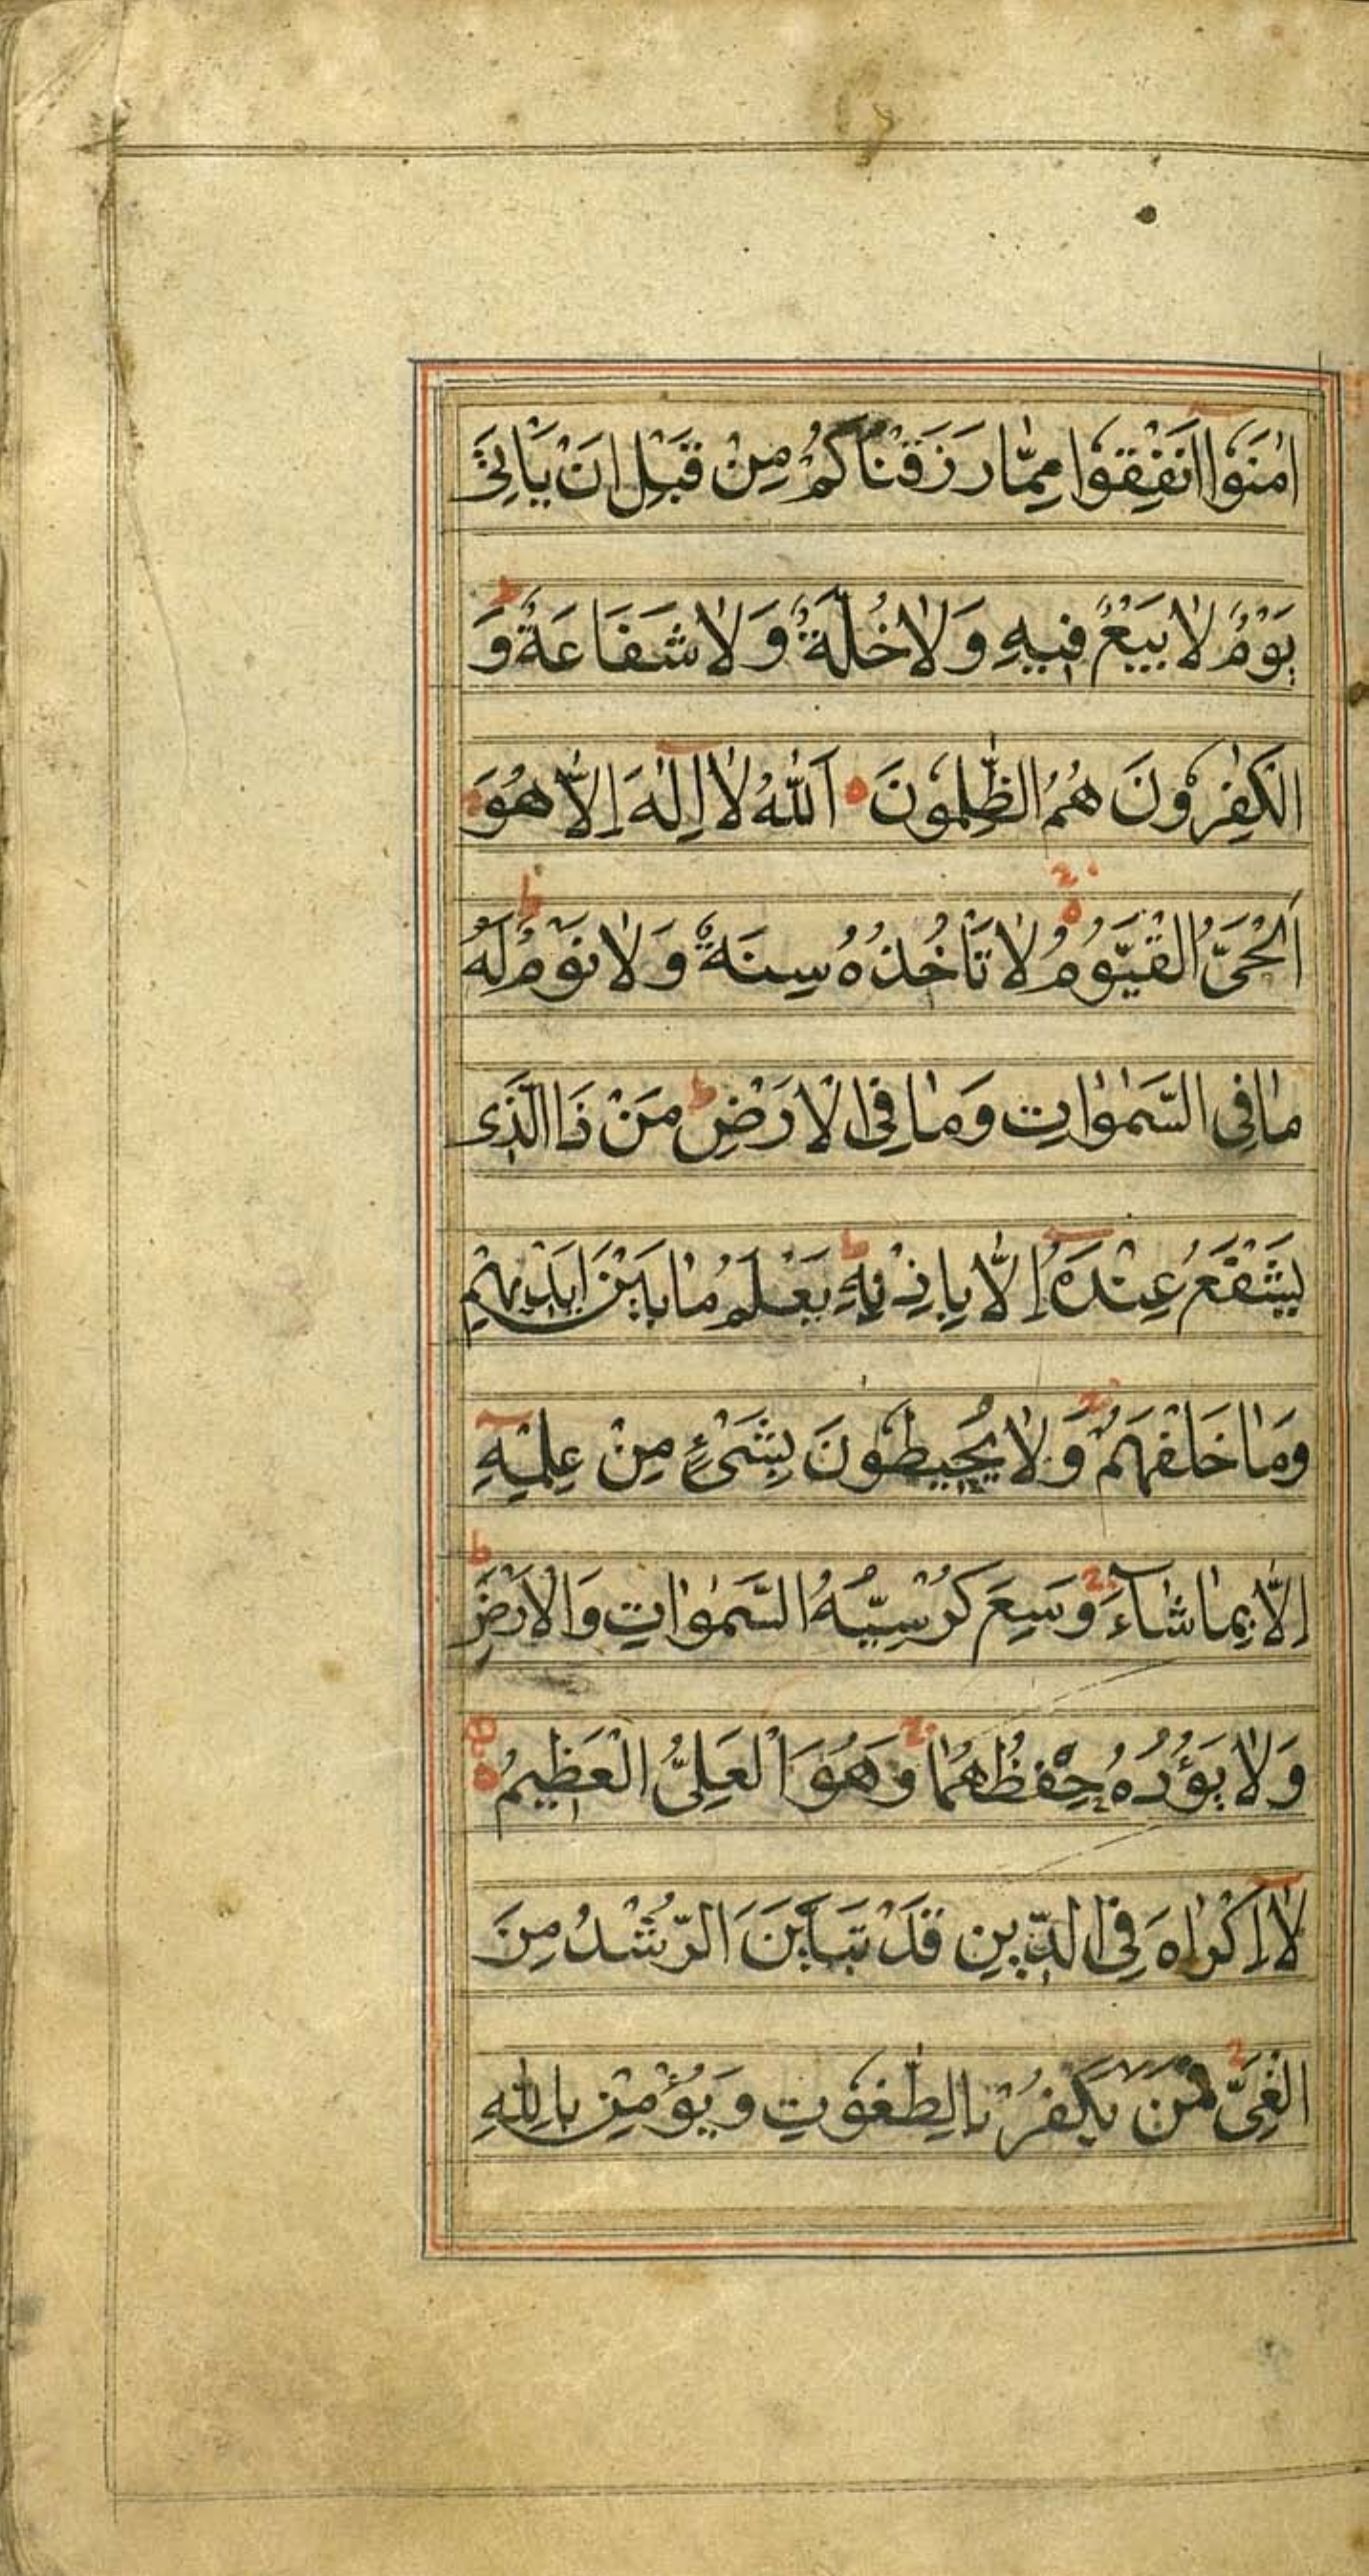 اٰمَنُوا اَنْفِقُوا مِمّٰا رَزَقْنٰاكُمْ مِنْ قَبْلِ اَنْ يَاْتِيَ
يَوْمٌ لٰا بَيْعٌ فِيهِ وَلٰا خُلَّةٌ وَلٰا شَفَاعَةٌ وَ
الْكٰفِرُونَ هُمُ الظّٰلِمُونَ اَللّٰهُ لٰا اِلٰهَ اِلّٰا هُوَ
اَلْحَيُّ الْقَيُّومُ لٰا تَاْخُذُهُ سِنَةٌ وَلٰا نَوْمٌ لَهُ
مٰا فِي السَّمٰوٰاتِ وَمٰا فِي الْاَرْضِ مَنْ ذَا الَّذِي
يَشْفَعُ عِنْدَهُ اِلّٰا بِاِذْنِهِ يَعْلَمُ مٰا بَيْنَ اَيْدِيهِمْ
وَمٰا خَلْفَهُمْ وَلٰا يُحِيطُونَ بِشَيْءٍ مِنْ عِلْمِهِ
اِلّٰا بِمٰا شٰاءَ وَسِعَ كُرْسِيُّهُ السَّمٰوٰاتِ وَالْاَرْضَ
وَلٰا يَؤُدُهُ حِفْظُهُمٰا وَهُوَ الْعَلِيُّ الْعَظِيمُ
لٰا اِكْرٰاهَ فِي الدِّينِ قَدْ تَبَيَّنَ الرُّشْدُ مِنَ
الْغَيِّ فَمَنْ يَكْفُرْ بِالطّٰغُوتِ وَيُؤْمِنْ بِاللّٰهِ